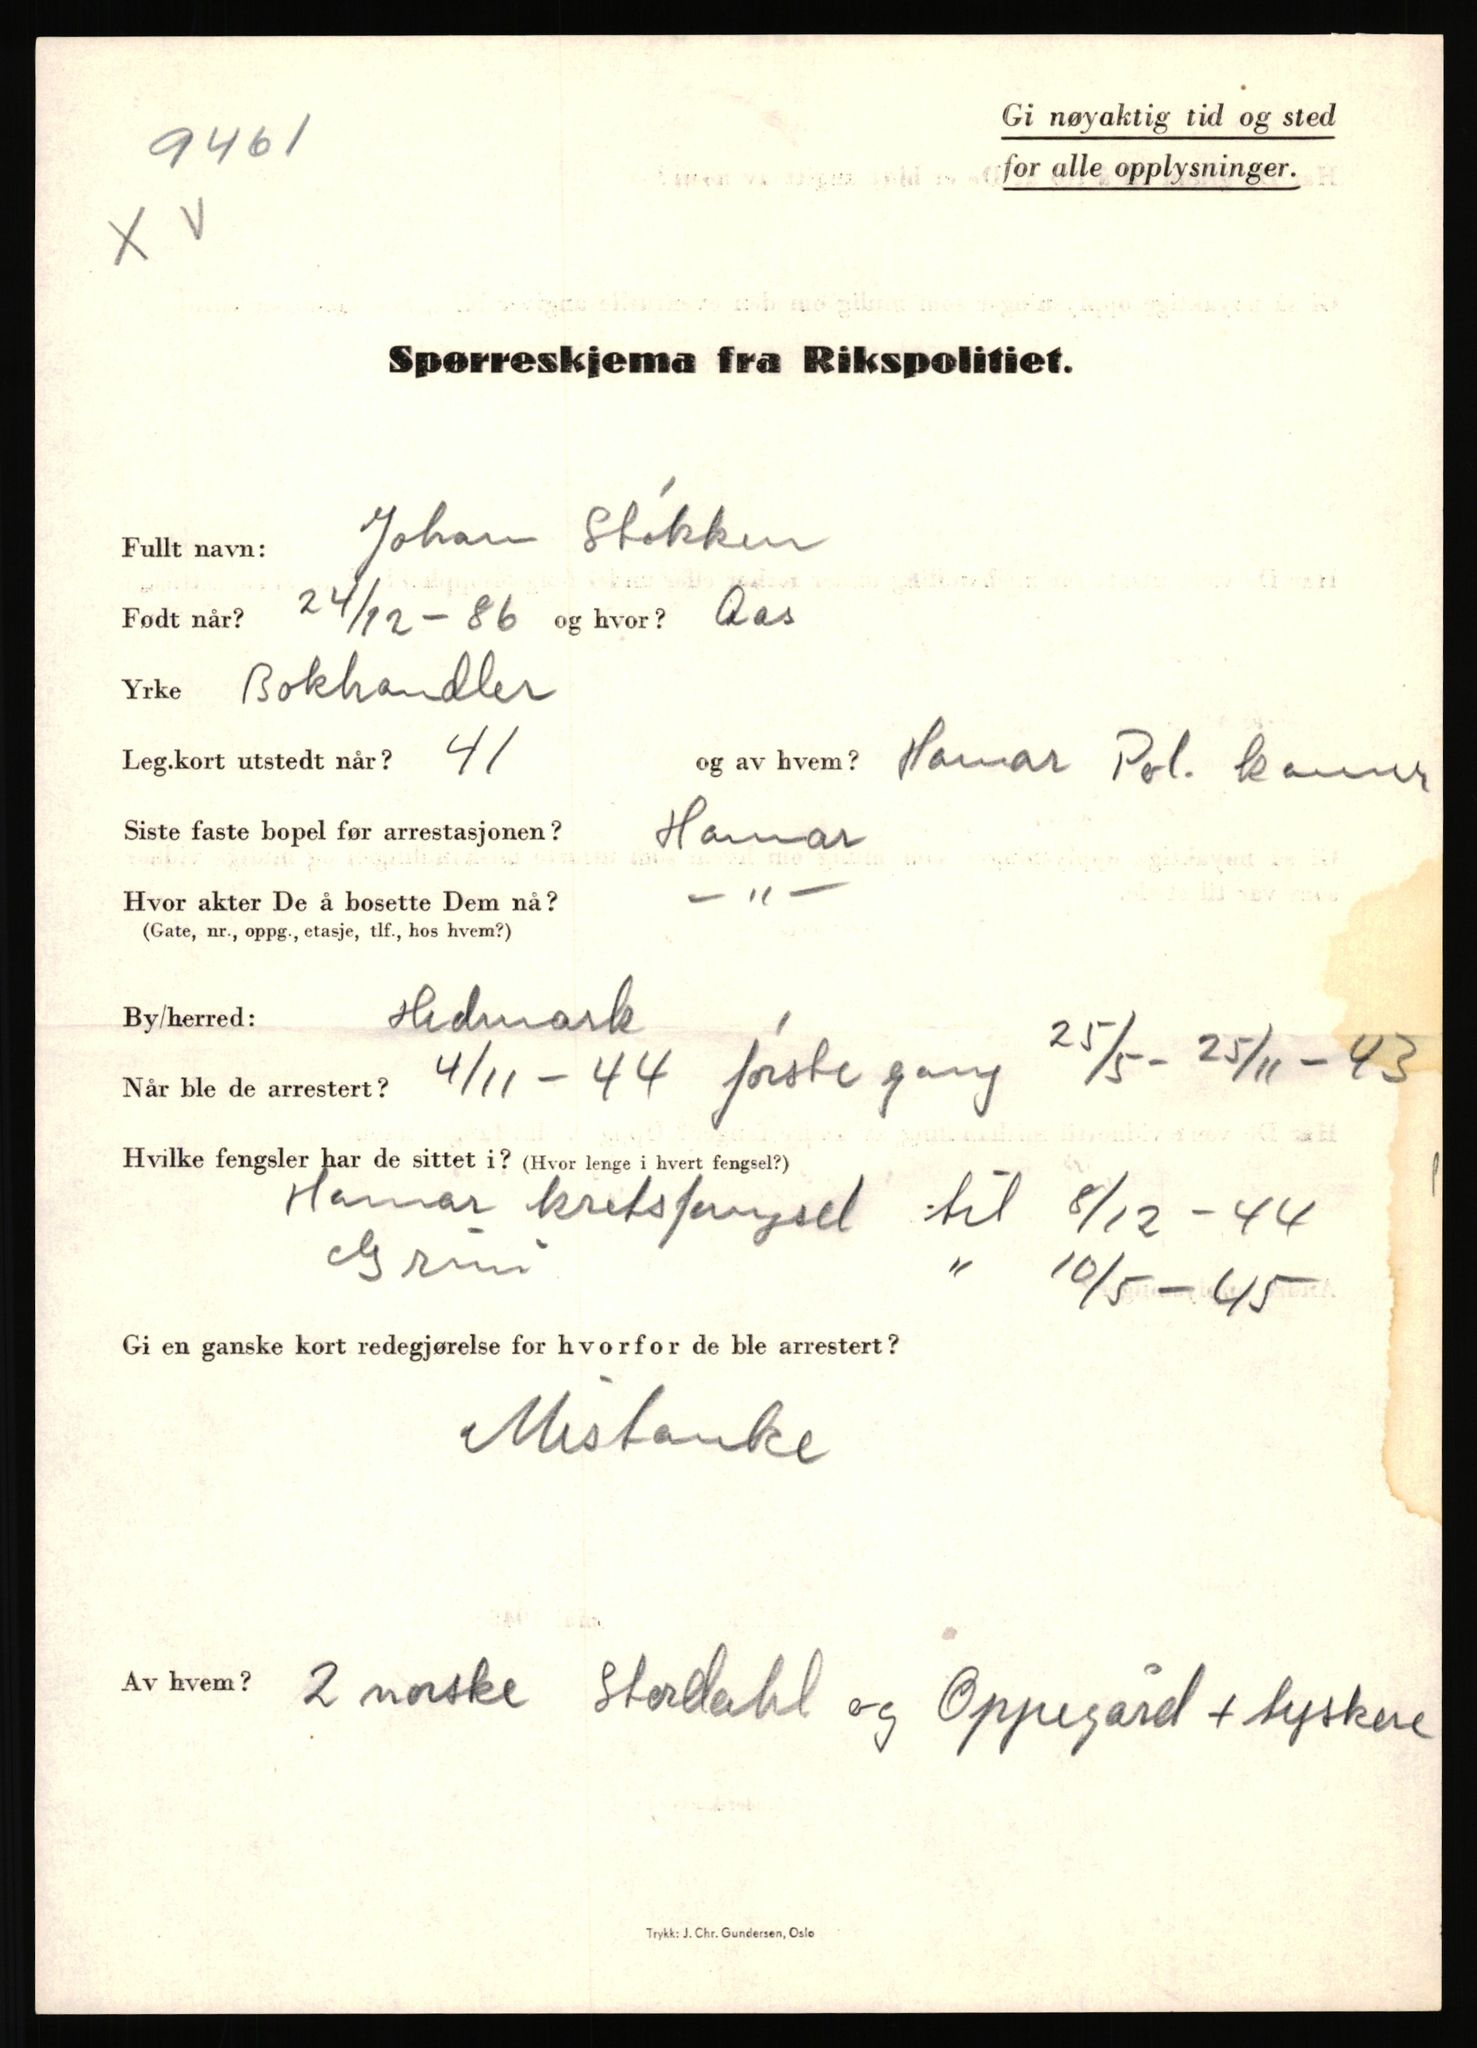 9461
X V
Gi nøyaktig tid og sted
for alle opplysninger.
Spørreskjema fra Rikspolitiet.
Fullt navn: Johan Støkken
Født når? 24/12 - 86 og hvor? Aas
Yrke Bokhandler
Leg.kort utstedt når? 41 og av hvem? Hamar Pol. kamer
Siste faste bopel før arrestasjonen? Hamar
Hvor akter De å bosette Dem nå? - " -
(Gate, nr., oppg., etasje, tlf., hos hvem?)
By/herred: Hedmark
Når ble de arrestert? 4/11 - 44 første gang 25/5 - 25/11 - 43
Hvilke fengsler har de sittet i? (Hvor lenge i hvert fengsel?)
Hamar kretsfengsel til 8/12 - 44
Grini " 10/5 - 45
Gi en ganske kort redegjørelse for hvorfor de ble arrestert?
Mistanke
Av hvem? 2 norske Stordahl og Oppegård + tyskere
Trykk: J. Chr. Gundersen, Oslo